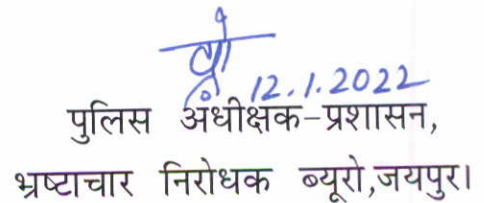 12.1.2022
पुलिस अधीक्षक-प्रशासन,
भ्रष्टाचार निरोधक ब्यूरो,जयपुर।